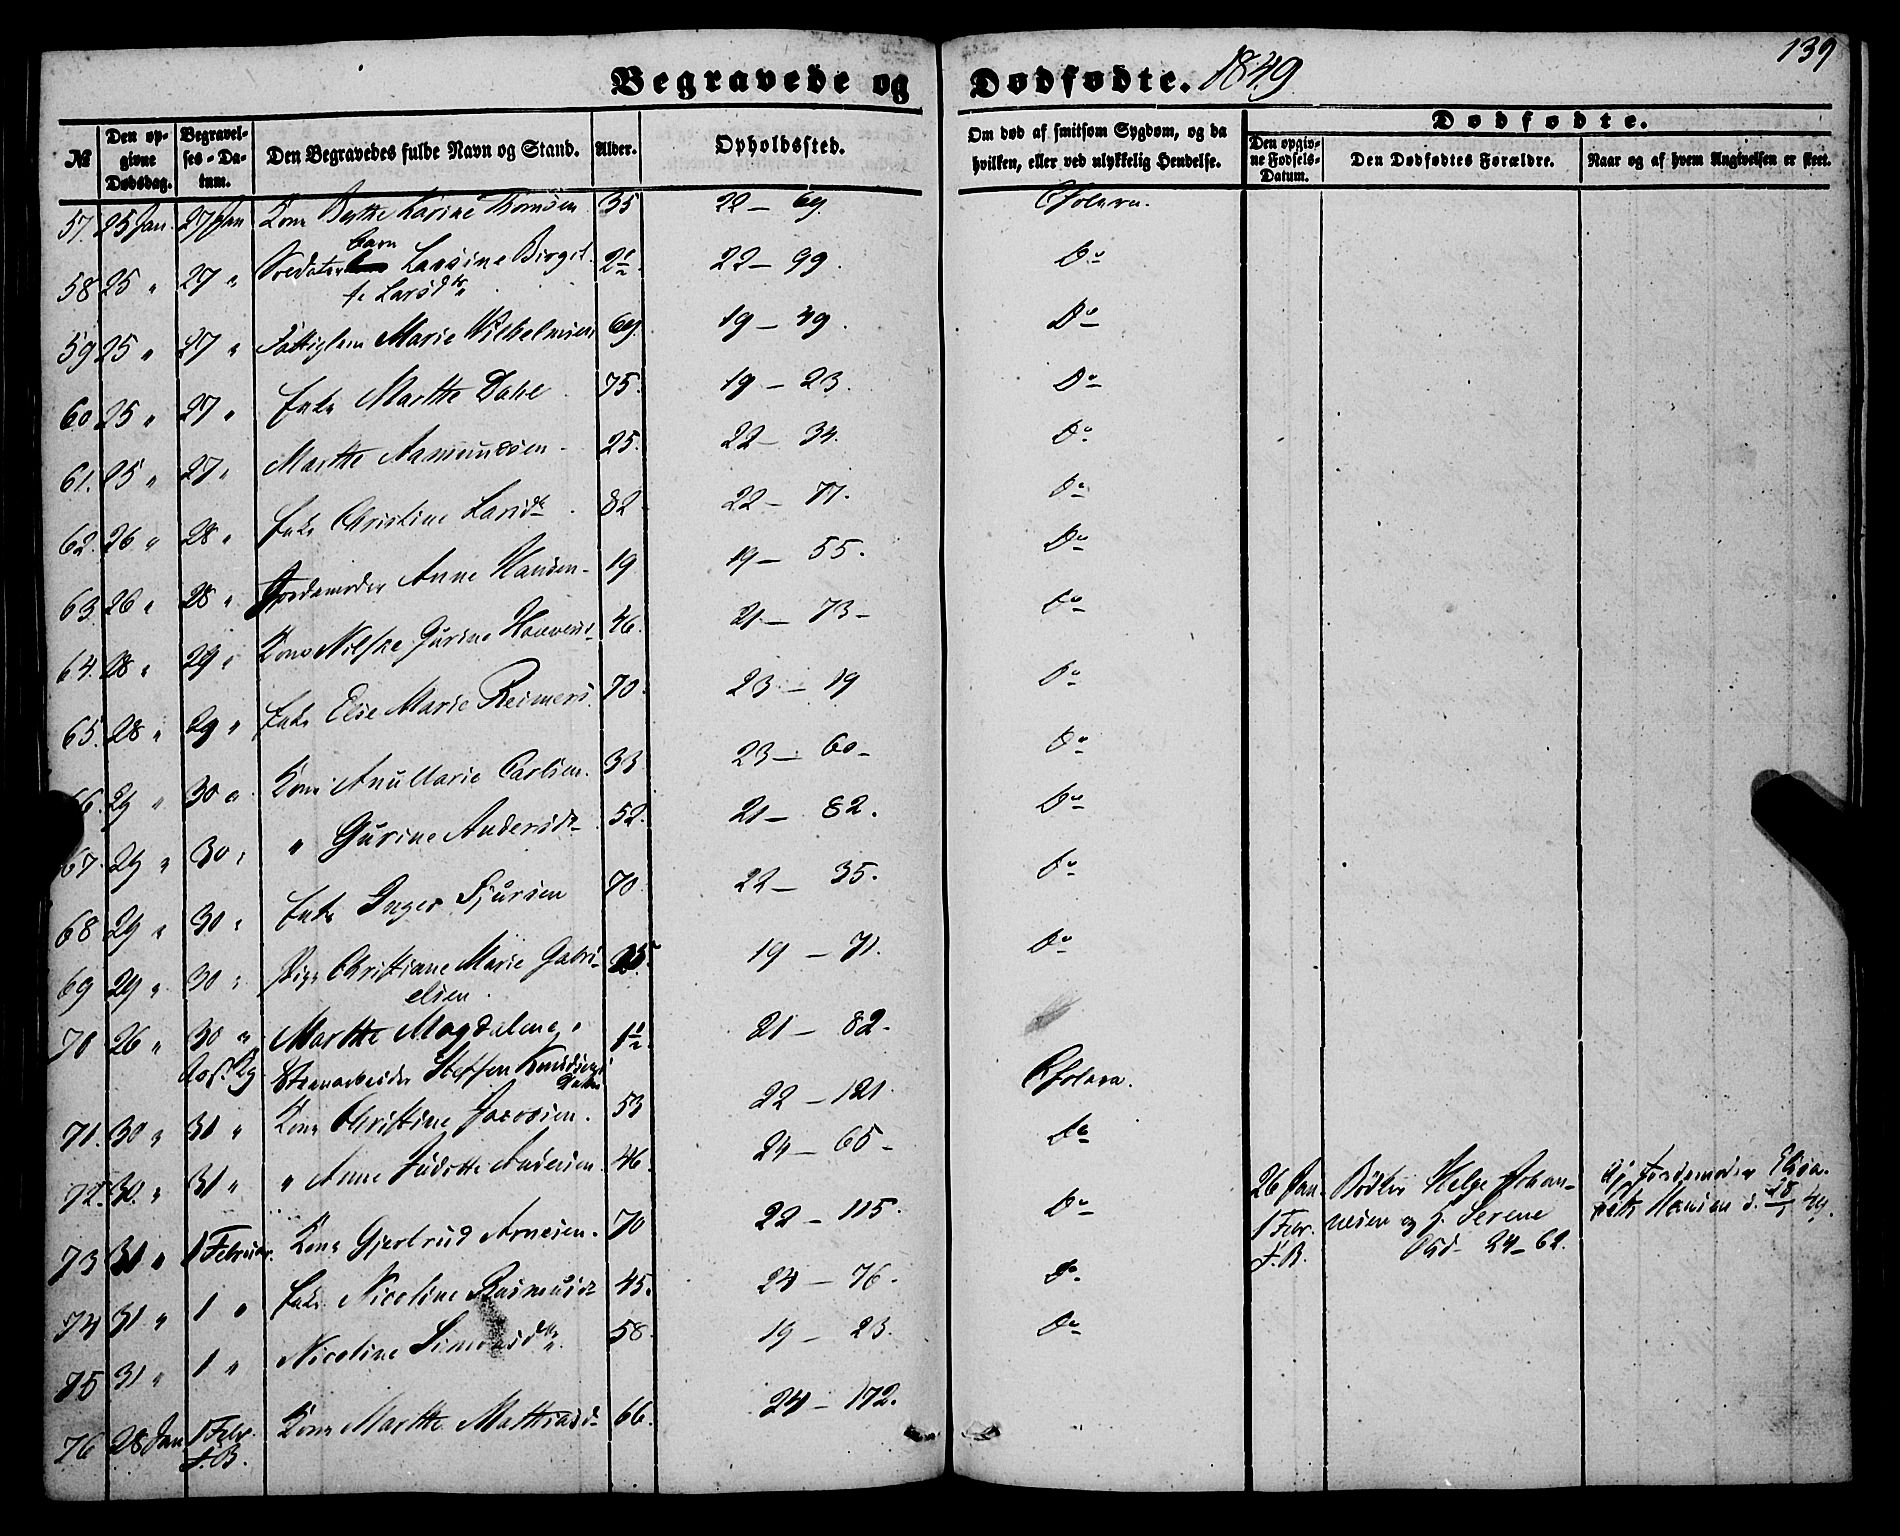 Begravede og Dødfødte. 1849
139
№
Den opgivne Dødsdag.
Begravelses-Datum.
Den Begravedes fulde Navn og Stand.
Alder.
Opholdssted.
Om død af smitsom Sygdom, og da hvilken, eller ved ulykkelig Hendelse.
Dødfødte.
Den opgivne Fødsels-Datum.
Den Dødfødtes Forældre.
Naar og af hvem Angivelsen er skeet.
57. 25 Jan. 27 Jan Kone Karine Thomsen 35 22 – 69. Cholera.
58 25 " 27 " barn Larsine Birgit- 2½ 22 – 99. Do
te Larsdtr
59 25 " 27 " Fattiglem Marie Wilhelmsen 69. 19 – 49. Do
60 25 " 27 " Enke Marthe Dahl 75. 19 – 23. Do
61. 25 " 27 " Marthe Aamundsen 25. 22 – 34. Do
62. 26 " 28 " Enke Christine Larsdr 82 22 – 77. Do
63. 26 " 28 " Anne Hansen 19 19 – 55. Do
64. 28 " 29 " Kone Gurine 46. 21 – 73 – Do
65. 28 " 29 " Enke Else Marie Reimers 70. 23 – 19 Do
66. 29 " 30 " Kone Marie Carlsen. 33 23 – 60 – Do
67. 29 " 30 " " Gurine Andersdr 52. 21 – 82. Do
68 29 " 30 " Enke Inger Sjursen 70 22 – 35. Do
69 29 " 30 " Pige Christiane Marie Gabri- 19 – 71. Do
elsen.
70 26 " 30 " Marthe Magdalene, 1½. 21 – 82.
Steffen Knudsens
Datter
71. 30 " 31 " Kone Christine Jacobsen. 53 22 – 121. Cholera.
72. 30 " 31 " " Anne Andersen 46. 24 – 65 – Do
73 31 " 1 Februar. Kone Gjertrud Arnesen. 70 22 – 115. Do
74 31 " 1 " Enke Nicoline Rasmusdr 45. 24 – 76. Do
75 31 " 1 " Nicoline Simonsdtr 58. 19 – 23. Do
76 28 Jan 1 Febr. Kone Marthe Mathiasdr 66. 24 – 172.
F.B.
26 Jan. Bødker Helge Johan-
1 Febr. nesen og H. Serene
F.B. Olsd – 24 – 62.
Jordemoder Elisa-
beth Hansen d. 28/1 49.